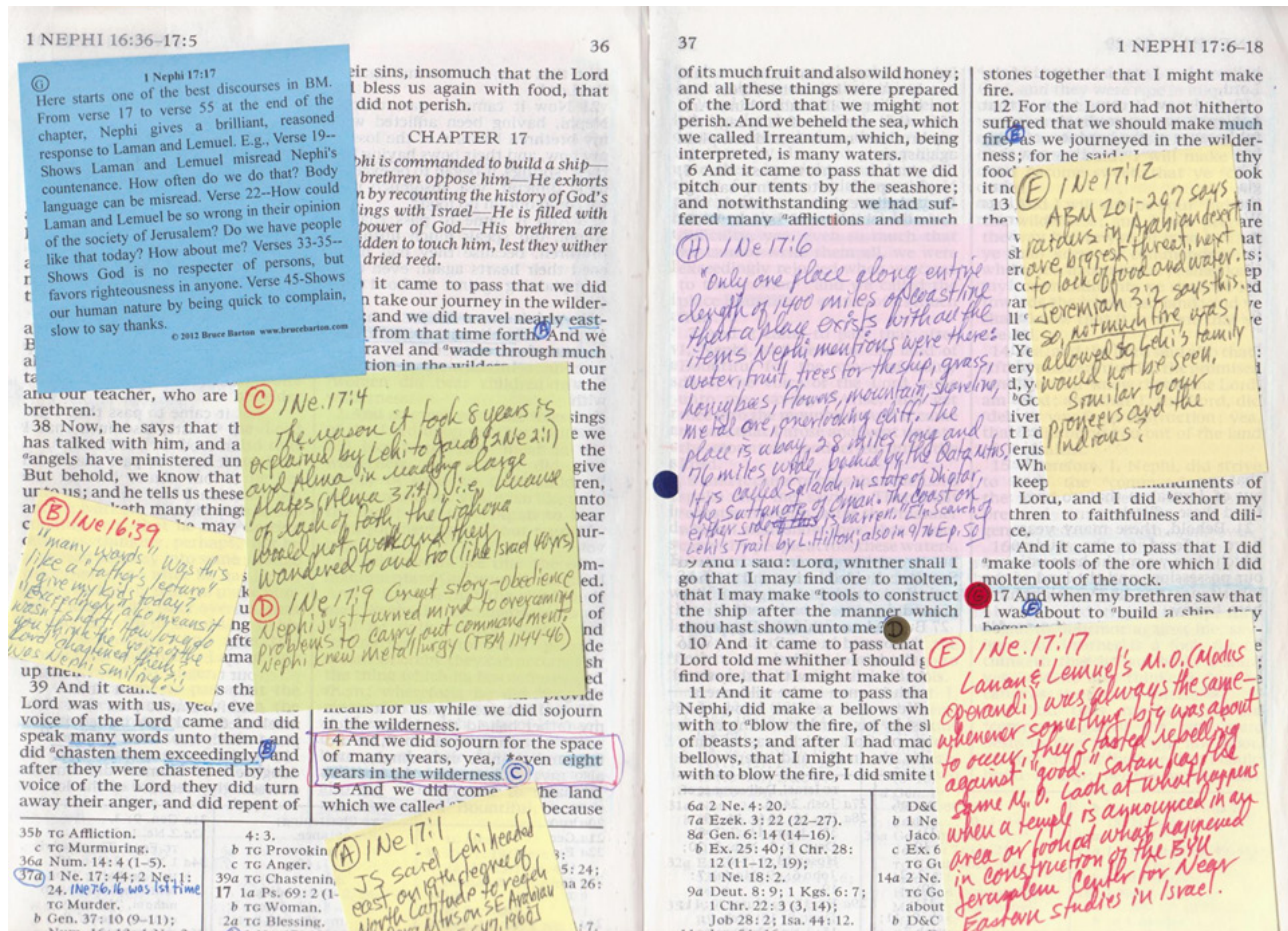 1 NEPHI 16:36–17:5
36
G
1 Nephi 17:17
Here starts one of the best discourses in BM.
From verse 17 to verse 55 at the end of the
chapter, Nephi gives a brilliant, reasoned
response to Laman and Lemuel. E.g., Verse 19--
Shows Laman and Lemuel misread Nephi's
countenance. How often do we do that? Body
language can be misread. Verse 22--How could
Laman and Lemuel be so wrong in their opinion
of the society of Jerusalem? Do we have people
like that today? How about me? Verses 33-35--
Shows God is no respecter of persons, but
favors righteousness in anyone. Verse 45-Shows
our human nature by being quick to complain,
slow to say thanks.
© 2012 Bruce Barton www.brucebarton.com
and our teacher, who are
brethren.
38 Now, he says that
has talked with him, and
ᵃangels have ministered
But behold, we know that
us; and he tells us these
many things
may
B 1Ne 16:39
"many words" Was this
like a "father's lecture"
I give my kids today?
"exceedingly" also means it
wasn't short! How long do
you think the voice of the
Lord "chastened them"?
Was Nephi smiling?
up
39 And it that the
Lord was with us, yea, even the
voice of the Lord came and did
speak many words unto them, and
did ᵃchasten them exceedingly; and B
after they were chastened by the
voice of the Lord they did turn
away their anger, and did repent of
sins, insomuch that the Lord
bless us again with food, that
did not perish.
CHAPTER 17
is commanded to build a ship—
brethren oppose him—He exhorts
by recounting the history of God's
with Israel—He is filled with
power of God—His brethren are
to touch him, lest they wither
dried reed.
it came to pass that we did
take our journey in the wilder-
; and we did travel nearly east-
from that time forth. A And we
travel and ᵃwade through much
in the and our
the
C 1 Ne. 17:4
The reason it took 8 years is
explained by Lehi to Jacob (2Ne 2:1)
and Alma in reading large
plates (Alma 37:41) (i.e. because
of lack of faith, the Liahona
would not work and they
wandered to and fro (like Israel 40 yrs)
D 1 Ne 17:9 Great story-obedience
Nephi just turned mind to overcoming
problems to carry out commandment.
Nephi knew metallurgy (TBM 1144-46)
means for us while we did sojourn
in the wilderness.
4 And we did sojourn for the space
of many years, yea, even eight
years in the wilderness. C
5 And we did come the land
which we called because
A 1 Ne 17:1
JS said Lehi headed
east on 19th degree of
North Latitude to reach
SE Arabian
35b TG Affliction.
c TG Murmuring.
36a Num. 14: 4 (1–5).
37a 1 Ne. 17: 44; 2 Ne. 1:
24. 1Ne 7:6,16 was 1st time
TG Murder.
b Gen. 37: 10 (9–11);
4: 3.
b TG
c TG Anger.
39a TG
17 1a Ps. 69: 2
b TG Woman.
2a TG Blessing.
37
1 NEPHI 17:6–18
of its much fruit and also wild honey;
and all these things were prepared
of the Lord that we might not
perish. And we beheld the sea, which
we called Irreantum, which, being
interpreted, is many waters.
6 And it came to pass that we did
pitch our tents by the seashore;
and notwithstanding we had suf-
fered many ᵃafflictions and much
H 1 Ne 17:6
"Only one place along entire
length of 1400 miles of coastline
that a place exists without the
items Nephi mentions were there:
water, fruit, trees for the ship, grass,
honeybees, flowers, mountain, shoreline,
metal ore, overlooking cliff. The
place is a bay, 28 miles long and
76 miles wide, backed by the Qara Mtns,
It is called Salalah, in state of Dhofar,
the Sultanate of Oman. The coast on
either side of this is barren." [In search of
Lehi's Trail by L. Hilton; also in 9/76 Ep. 50]
9 And I said: Lord, whither shall I
go that I may find ore to molten,
that I may make ᵃtools to construct
the ship after the manner which
thou hast shown unto me? D
10 And it came to pass that
Lord told me whither I should
find ore, that I might make
11 And it came to pass that
Nephi, did make a bellows
with to ᵃblow the fire, of the
of beasts; and after I had
bellows, that I might have
with to blow the fire, I did smite
6a 2 Ne. 4: 20.
7a Ezek. 3: 22 (22–27).
8a Gen. 6: 14 (14–16).
b Ex. 25: 40; 1 Chr. 28:
12 (11–12, 19);
1 Ne. 18: 2.
9a Deut. 8: 9; 1 Kgs. 6: 7;
1 Chr. 22: 3 (3, 14);
Job 28: 2; Isa. 44: 12.
stones together that I might make
fire.
12 For the Lord had not hitherto
suffered that we should make much
fire, E as we journeyed in the wilder-
ness; for he said: thy
food
it
13
the
E 1 Ne 17:12
ABM 201-297 says
raiders in Arabian desert
are biggest threat, next
to lack of food and water.
Jeremiah 3:2 says this.
So, not much fire was
allowed so Lehi's family
would not be seen.
Similar to our
pioneers and the
Indians?
keep
Lord, and I did ᵇexhort my
to faithfulness and dili-
And it came to pass that I did
ᵃmake tools of the ore which I did
molten out of the rock.
G 17 And when my brethren saw that
I was about to ᵃbuild a ship, they
F 1 Ne. 17:17
Laman & Lemuel's M.O. (Modus
Operandi) was always the same-
whenever something big was about
to occur, they started rebelling
against "good." Satan has the
same M.O. Look at what happens
when a temple is announced in an
area or look at what happened
in construction of the BYU
Jerusalem Center for Near
Eastern studies in Israel.
D&C
b 1 Ne
c Ex. 6
14a 2 Ne.
about
b D&C